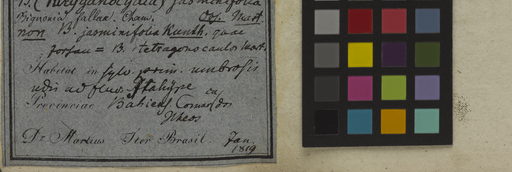 B. (Chrysanodiscus) jasminifolia
Bignonia fallax. Cham. Coll. Mart.
non B. jasminifolia Kunth. quae
forsan = B. tetragonocaulis Mart.
Habitat in sylv. prim. umbrosis
udis ad fluv. Itahype
Provinciae Bahiens. Comar. dos
Ilheos
Dr. Martius Iter Brasil. Jan.
1819